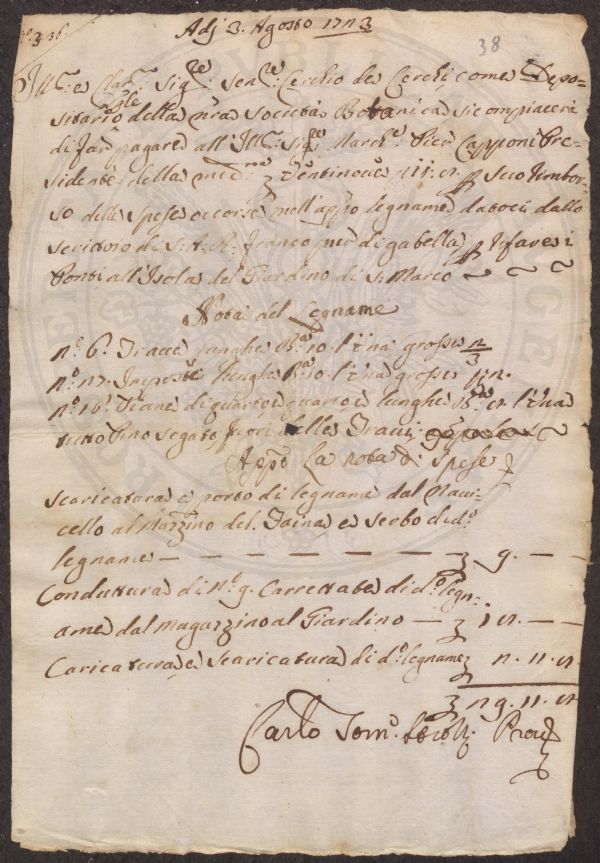 N.° 336.
Adj 3. Agosto 1723
38
Ill.mo e Clar.mo Sig.re Sen.re Cerchio de Cerchi, come Depo=
sitario della nr̃a Società Botanica si compiacerà
di far pagare all' Ill.mo Sig.re March.e Pier Capponi Pre=
sidente della med.ma ventinove
so delle Spese occorse nell' app.o legname datoci dallo
scrittoio di S. A. R. franco pur di gabella p rifare i
Ponti all' Isola del Giardino di S. Marco
Nota del Legname
n.° 6. Tracce lunghe B.a 10. l'una grosse 2/3
n.° 12. lunghe B.a 10. l'una grosse
n.° 16. Piane di quarto e quarto lunghe l'una
tutto Pino segato fuori delle Tracce
App.o La nota di Spese
Scaricatura e porto di legname dal Navi-
cello al Mag.zino del Taina e serbo di d.o
legname — — — — — — 9. — —
Conduttura di n.° 9. Carrettate di d.o legn-
ame dal magazzino al Giardino —
Caricatura e Scaricatura di d.o legname
Carlo Tom.o Prov.re